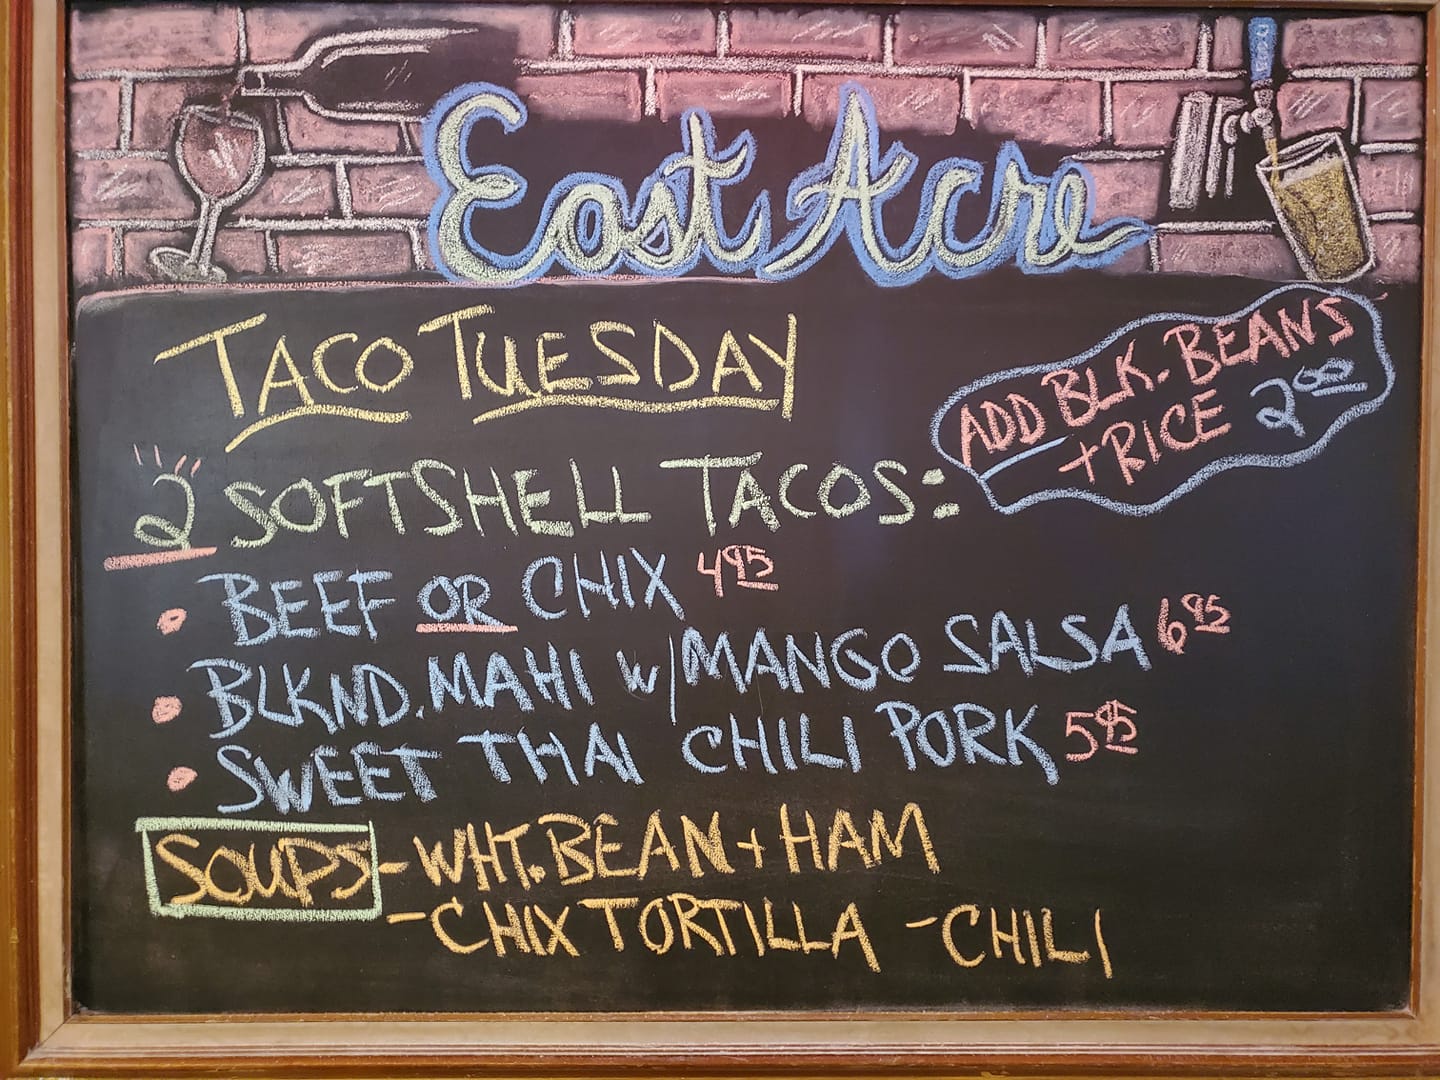 East Acre
TACO TUESDAY
ADD BLK. BEANS
+ RICE 2⁰⁰
2 SOFTSHELL TACOS:
• BEEF OR CHIX 4⁹⁵
• BLKND. MAHI w/ MANGO SALSA 6⁹⁵
• SWEET THAI CHILI PORK 5⁹⁵
SOUPS - WHT. BEAN + HAM
- CHIX TORTILLA - CHILI